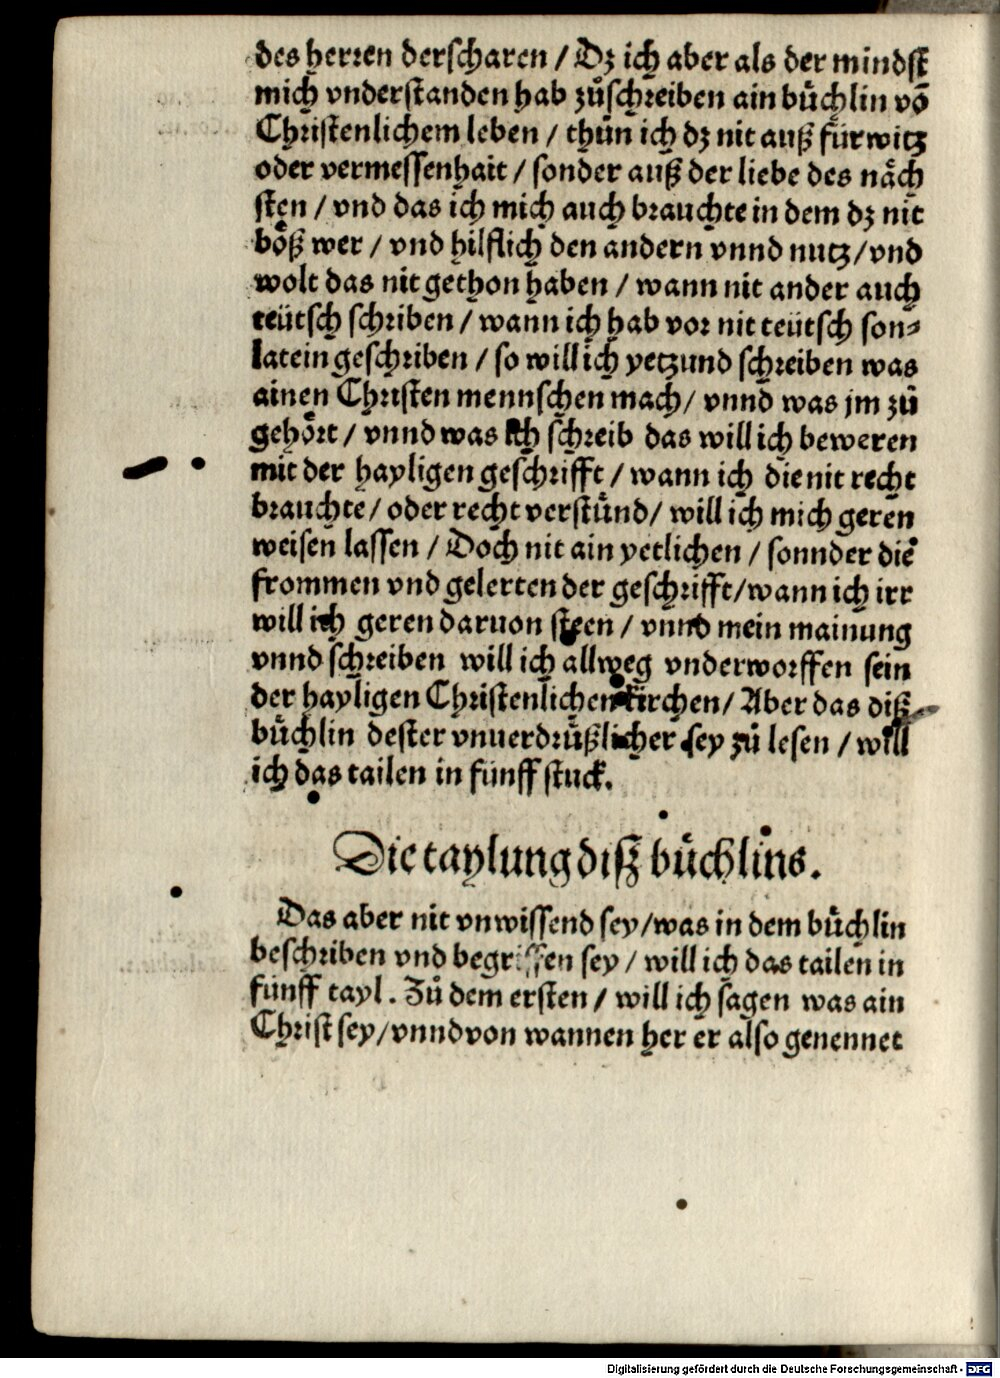 des herren der scharen / Dz ich aber als der mindst
mich vnderstanden hab zůschreiben ain bůchlin võ
Christenlichem leben / thůn ich dz nit auß fürwitz
oder vermessenhait / sonder auß der liebe des nåch
sten / vnd das ich mich auch brauchte in dem dz nit
bőß wer / vnd hilflich den andern vnnd nutz / vnd
wolt das nit gethon haben / wann nit ander auch
teütsch schriben / wann ich hab vor nit teütsch son⸗
latein geschriben / so will ich yetzund schreiben was
ainen Christen mennschen mach / vnnd was jm zů
gehőrt / vnnd was ich schreib das will ich beweren
mit der hayligen geschrifft / wann ich die nit recht
brauchte / oder recht verstůnd / will ich mich geren
weisen lassen / Doch nit ain yetlichen / sonnder die
frommen vnd gelerten der geschrifft / wann ich irr
will ich geren daruon steen / vnnd mein mainung
vnnd schreiben will ich allweg vnderworffen sein
der hayligen Christenlichen kirchen / Aber das diß
bůchlin dester vnuerdrüßlicher sey zů lesen / will
ich das tailen in fünff stuck.
Die taylung diß bůchlins.
Das aber nit vnwissend sey / was in dem bůchlin
beschriben vnd begriffen sey / will ich das tailen in
fünff tayl. Zů dem ersten / will ich sagen was ain
Christ sey / vnnd von wannen her er also genennet
Digitalisierung gefördert durch die Deutsche Forschungsgemeinschaft - DFG